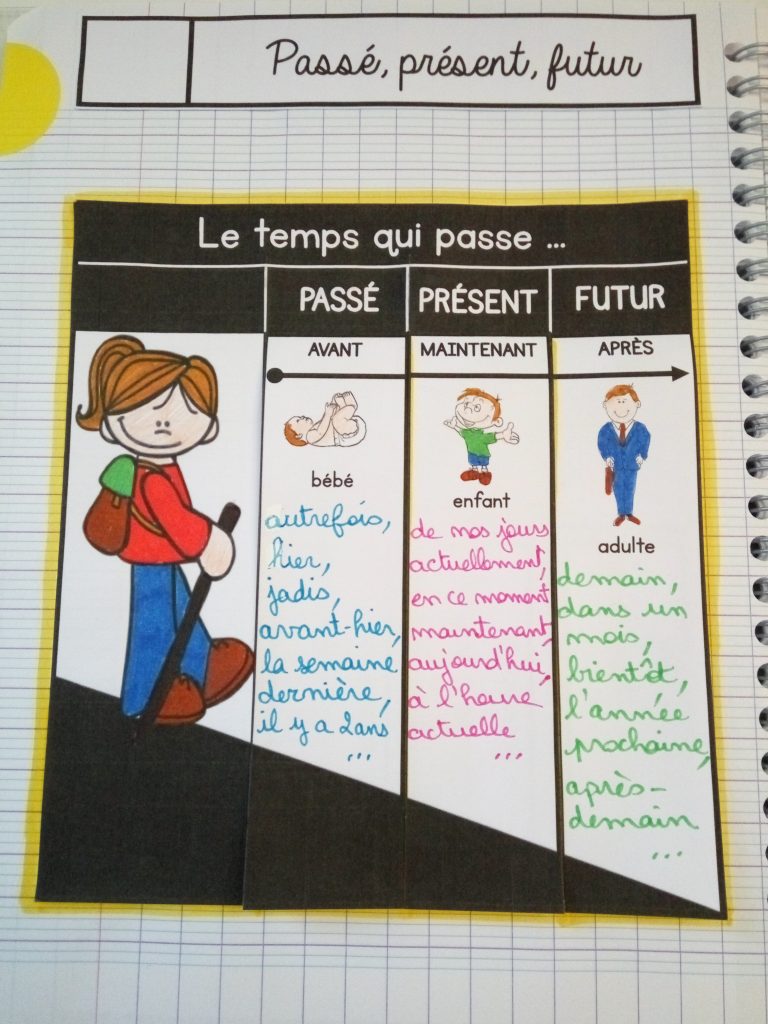 Passé, présent, futur
Le temps qui passe ...
PASSÉ
PRÉSENT
FUTUR
AVANT
MAINTENANT
APRÈS
bébé
enfant
adulte
autrefois,
hier,
jadis,
avant-hier,
la semaine
dernière,
il y a 2 ans
...
de nos jours
actuellement,
en ce moment
maintenant,
aujourd'hui,
à l'heure
actuelle
...
demain,
dans un
mois,
bientôt,
l'année
prochaine,
après-
demain
...